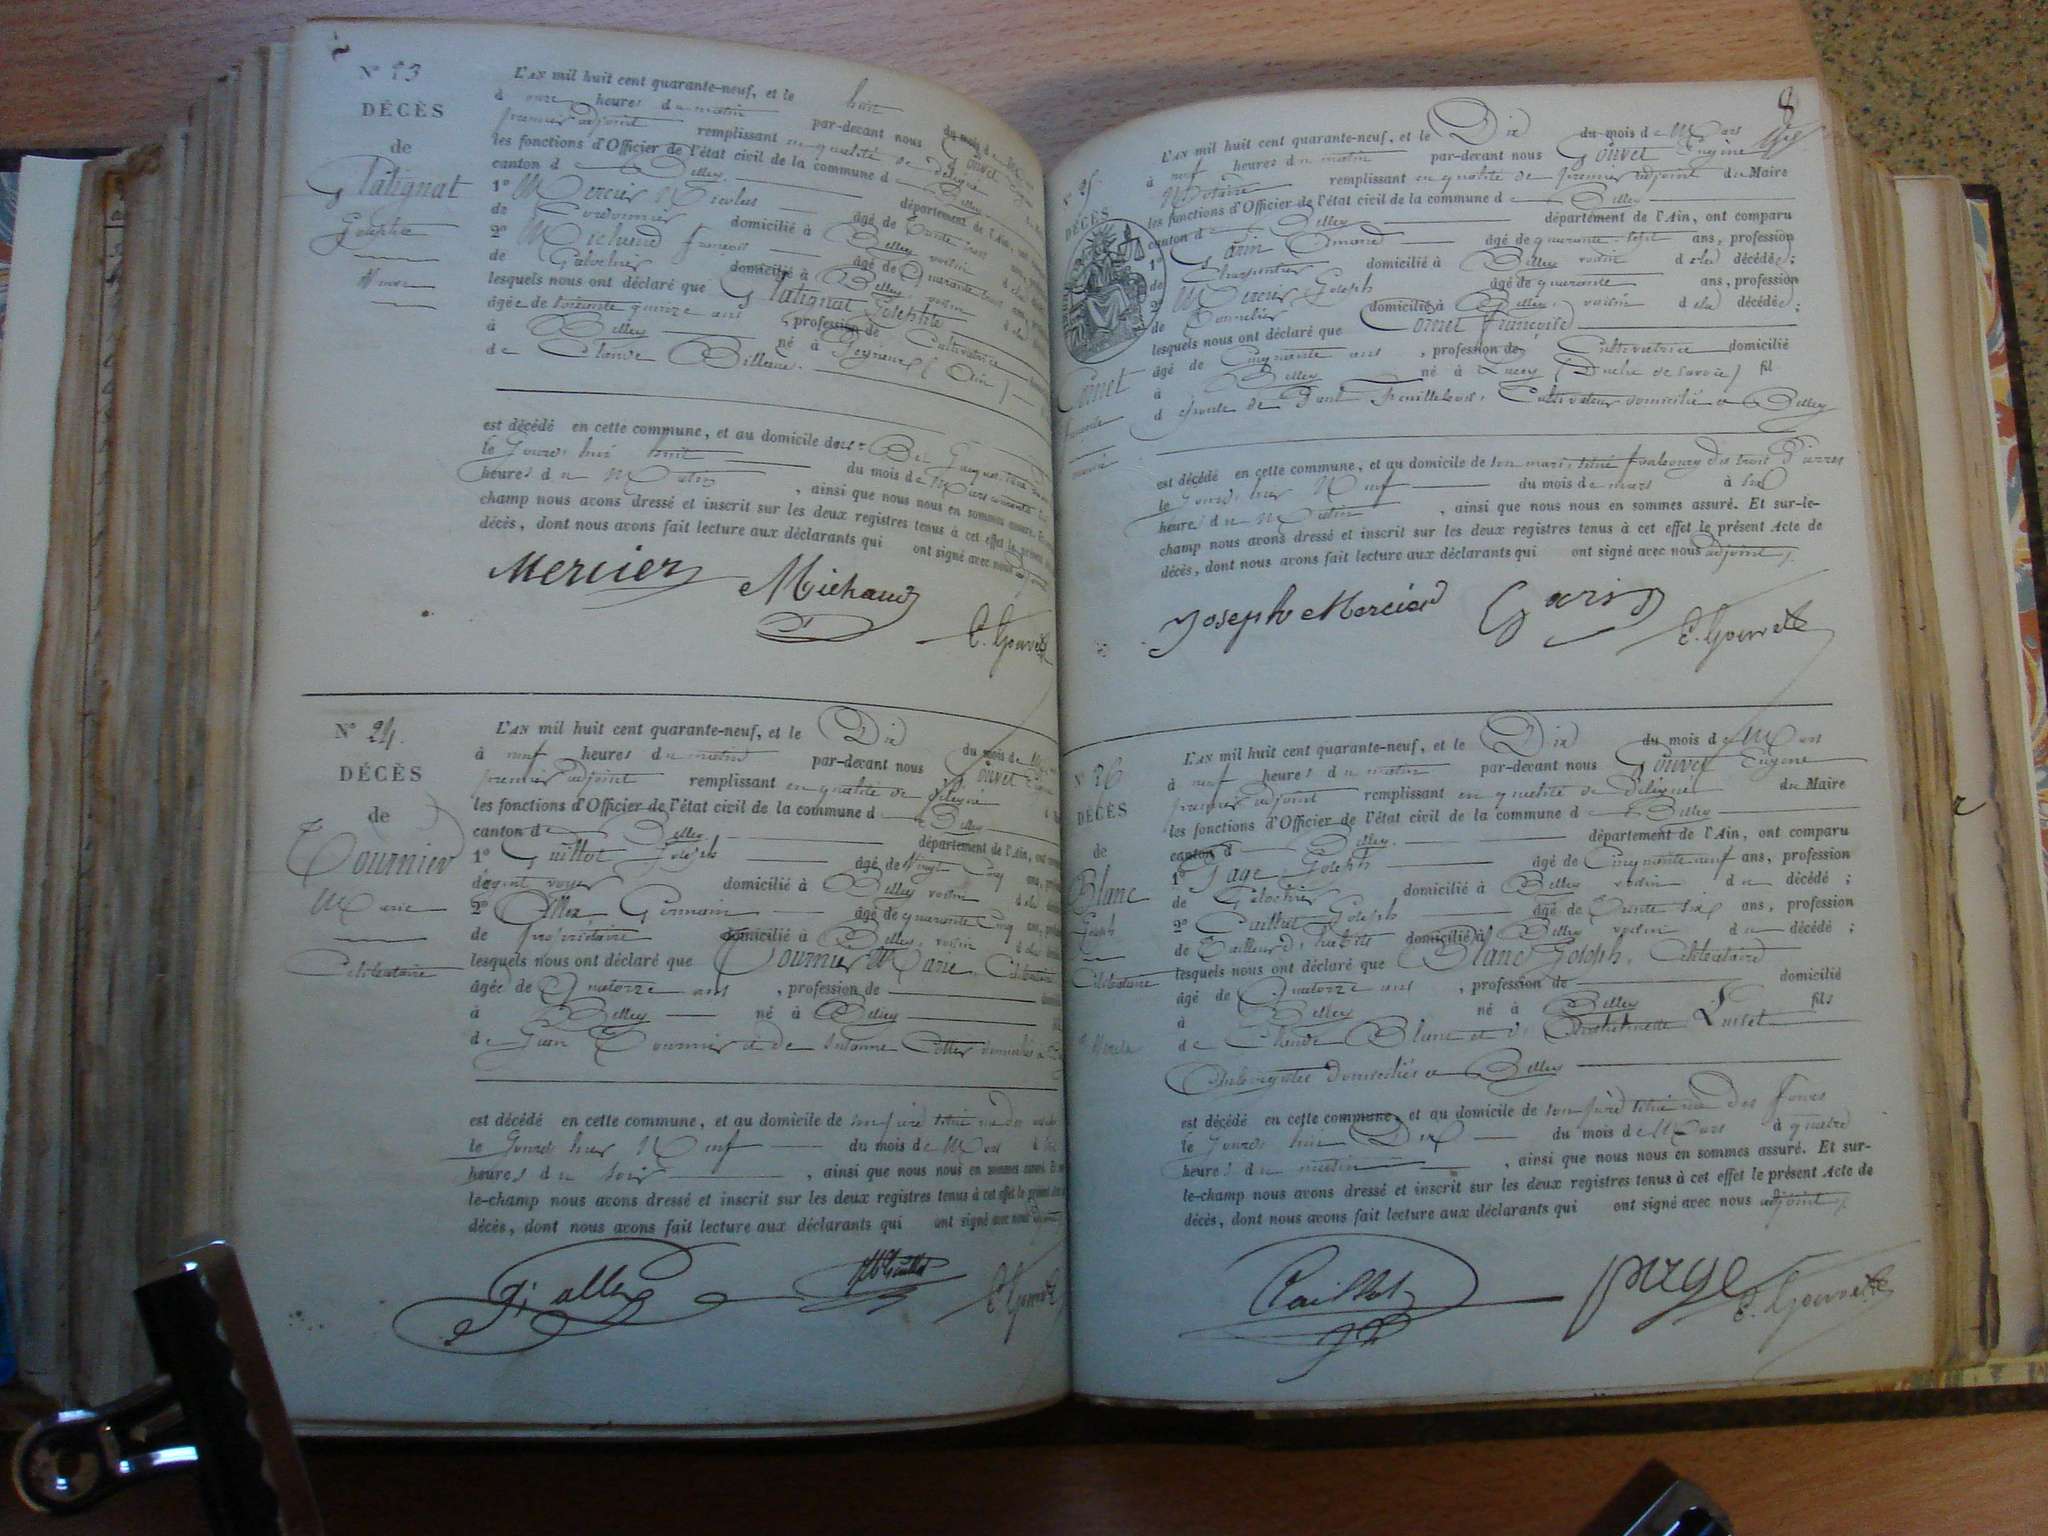 N° 23
DÉCÈS
de
Glatignat
Josephte
L'AN mil huit cent quarante-neuf, et le huit du mois de
à onze heures du matin par-devant nous Gouvet
premier adjoint remplissant en qualité de délégué
les fonctions d'Officier de l'état civil de la commune de Belley
canton de Belley département de l'Ain, ont
1° Mercier Nicolas âgé de trente
de Cordonnier domicilié à Belley voisin
2° Michaud françois âgé de quarante
de domicilié à Belley, voisin
lesquels nous ont déclaré que Glatignat Josephte
âgée de soixante quinze ans profession de Cultivatrice
à Belley né à (Ain)
de Claude Billieux.
est décédé en cette commune, et au domicile de
le jourd'hui huit du mois de Mars courant
heures du Matin , ainsi que nous nous en sommes assuré.
champ nous avons dressé et inscrit sur les deux registres tenus à cet effet le présent
décès, dont nous avons fait lecture aux déclarants qui ont signé avec nous adjoint
Mercier Michaud
E. Gouvet
N° 24.
DÉCÈS
de
Tournier
Marie
Célibataire
L'AN mil huit cent quarante-neuf, et le Dix du mois de
à neuf heures du matin par-devant nous Gouvet
premier adjoint remplissant en qualité de délégué
les fonctions d'Officier de l'état civil de la commune de Belley
canton de Belley département de l'Ain, ont
1° Guillot Joseph âgé de Vingt Cinq ans,
d'agent voyer domicilié à Belley voisin
2° Allex, Germain âgé de quarante Cinq ans,
de propriétaire domicilié à Belley, voisin
lesquels nous ont déclaré que Tournier Marie, Célibataire
âgée de Quatorze ans , profession de
à Belley né à Belley
de Jean Tournier et de Susanne domiciliés à
est décédé en cette commune, et au domicile de son père situé
le jourd'hier Neuf du mois de Mars à
heures du soir , ainsi que nous nous en sommes assuré.
le-champ nous avons dressé et inscrit sur les deux registres tenus à cet effet le présent
décès, dont nous avons fait lecture aux déclarants qui ont signé avec nous adjoint
G. allex Guillot E. Gouvet
8
N° 25.
DÉCÈS
Cornet
L'AN mil huit cent quarante-neuf, et le Dix du mois de Mars
à neuf heures du matin par-devant nous Gouvet Eugène
Notaire remplissant en qualité de premier adjoint du Maire
les fonctions d'Officier de l'état civil de la commune de Belley
canton de Belley département de l'Ain, ont comparu
1° Garin Amand âgé de quarante-sept ans, profession
de Charpentier domicilié à Belley voisin de la décédée;
2° Mercier Joseph âgé de quarante ans, profession
de Tonnelier domicilié à Belley, voisin de la décédée;
lesquels nous ont déclaré que Cornet Françoise
âgé de Cinquante ans , profession de Cultivatrice domicilié
à Belley né à Lucey (Duché de Savoie) fil
d épouse de Paul Cultivateur domicilié à Belley
est décédé en cette commune, et au domicile de son mari, situé faubourg des trois
le jourd'hier Neuf du mois de mars à six
heures du Matin , ainsi que nous nous en sommes assuré. Et sur-le-
champ nous avons dressé et inscrit sur les deux registres tenus à cet effet le présent Acte de
décès, dont nous avons fait lecture aux déclarants qui ont signé avec nous adjoint
Joseph Mercier Garin E. Gouvet
N° 26
DÉCÈS
de
Blanc
Joseph
Célibataire
L'AN mil huit cent quarante-neuf, et le Dix du mois de Mars
à neuf heures du matin par-devant nous Gouvet Eugène
premier adjoint remplissant en qualité de Délégué du Maire
les fonctions d'Officier de l'état civil de la commune de Belley
canton d Belley. département de l'Ain, ont comparu
1° Page Joseph âgé de Cinquante neuf ans, profession
de domicilié à Belley voisin du décédé;
2° Caillot Joseph âgé de trente six ans, profession
de Tailleur d'habits domicilié à Belley voisin du décédé;
lesquels nous ont déclaré que Blanc Joseph, Célibataire
âgé de Quatorze ans , profession de domicilié
à Belley né à Belley fils
de Claude Blanc et de
Aubergistes domiciliés à Belley
est décédé en cette commune, et au domicile de son père situé rue des
le jourd'hui Dix du mois de Mars à quatre
heures du matin , ainsi que nous nous en sommes assuré. Et sur-
le-champ nous avons dressé et inscrit sur les deux registres tenus à cet effet le présent Acte de
décès, dont nous avons fait lecture aux déclarants qui ont signé avec nous adjoint
Caillot page E. Gouvet